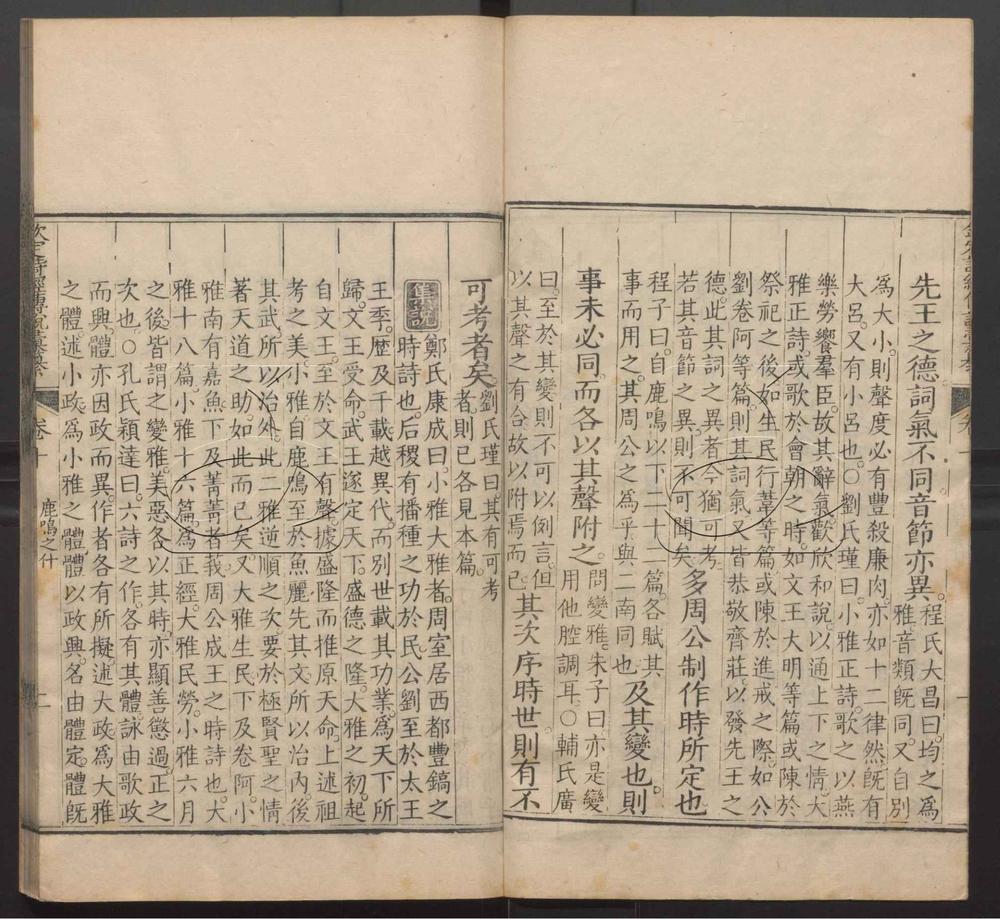 先王之德詞氣不同音節亦異程氏大昌曰均之為雅音類既同又自別
為大小則聲度必有豐殺廉肉亦如十二律然既有
大呂又有小呂也○劉氏瑾曰小雅正詩歌之以燕
樂勞饗羣臣故其辭氣歡欣和說以通上下之情大
雅正詩或歌於會朝之時如文王大明等篇或陳於
祭祀之後如生民行葦等篇或陳於進戒之際如公
劉卷阿等篇則其詞氣又皆恭敬齊莊以發先王之
德此其詞之異者今猶可考
若其音節之異則不可聞矣多周公制作時所定也
程子曰自鹿鳴以下二十二篇各賦其
事而用之其周公之為乎與二南同也及其變也則
事未必同而各以其聲附之問變雅朱子曰亦是變用他腔調耳○輔氏廣
曰至於其變則不可以例言但
以其聲之有合故以附焉而已其次序時世則有不
可考者矣劉氏瑾曰其有可考者則已各見本篇
集說鄭氏康成曰小雅大雅者周室居西都豐鎬之
時詩也后稷有播種之功於民公劉至於太王
王季歷及千載越異代而別世載其功業為天下所
歸文王受命武王遂定天下盛德之隆大雅之初起
自文王至於文王有聲據盛隆而推原天命上述祖
考之美小雅自鹿鳴至於魚麗先其文所以治內後
其武所以治外此二雅逆順之次要於極賢聖之情
著天道之助如此而已矣又大雅生民下及卷阿小
雅南有嘉魚下及菁菁者莪周公成王之時詩也大
雅十八篇小雅十六篇為正經大雅民勞小雅六月
之後皆謂之變雅美惡各以其時亦顯善懲過正之
次也○孔氏穎達曰六詩之作各有其體詠由歌政
而興體亦因政而異作者各有所擬述大政為大雅
之體述小政為小雅之體體以政興名由體定體既
欽定詩經傳說彙纂
卷十
鹿鳴之什